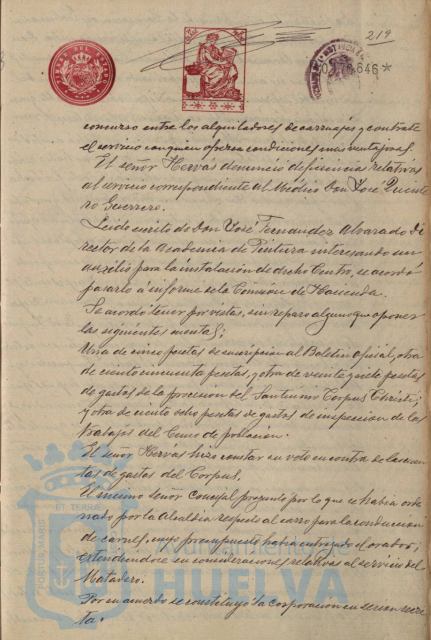 219
646*
concurso entre los alquiladores de carruajes y contrate
el servicio con quien ofrezca condiciones mas ventajosas.
El señor Hervás denunció deficiencias relativas
al servicio correspondiente al Médico Don José Quinte
ro Guerrero.
Leido escrito de Don José Fernandez Alvarado Di
rector de la Academia de Pintura interesando un
auxilio para la instalación de dicho Centro, se acordó
pasarlo á informe de la Comisión de Hacienda.
Se acordó tener por vistas, sin reparo alguno que oponer
las siguientes cuentas;
Una de cinco pesetas de suscripción al Boletin oficial, otra
de ciento cincuenta pesetas, y otra de veinte y siete pesetas
de gastos de la procesion del Santisimo Corpus Christi;
y otra de ciento ocho pesetas de gastos de inspeccion de los
trabajos del Censo de poblacion.
El señor Hervás hizo constar su voto en contra de las cuen
tas de gastos del Corpus.
El mismo señor Concejal preguntó por lo que se habia orde
nado por la Alcaldia respecto al carro para la conduccion
de carnes, cuyo presupuesto habia entregado el orador;
extendiendose en consideraciones relativas al servicio del
Matadero.
Por su acuerdo se constituyó la Corporacion en sesion secre
ta.
PORTUS MARIS
ET TERRAE
Ayuntamiento de
HUELVA